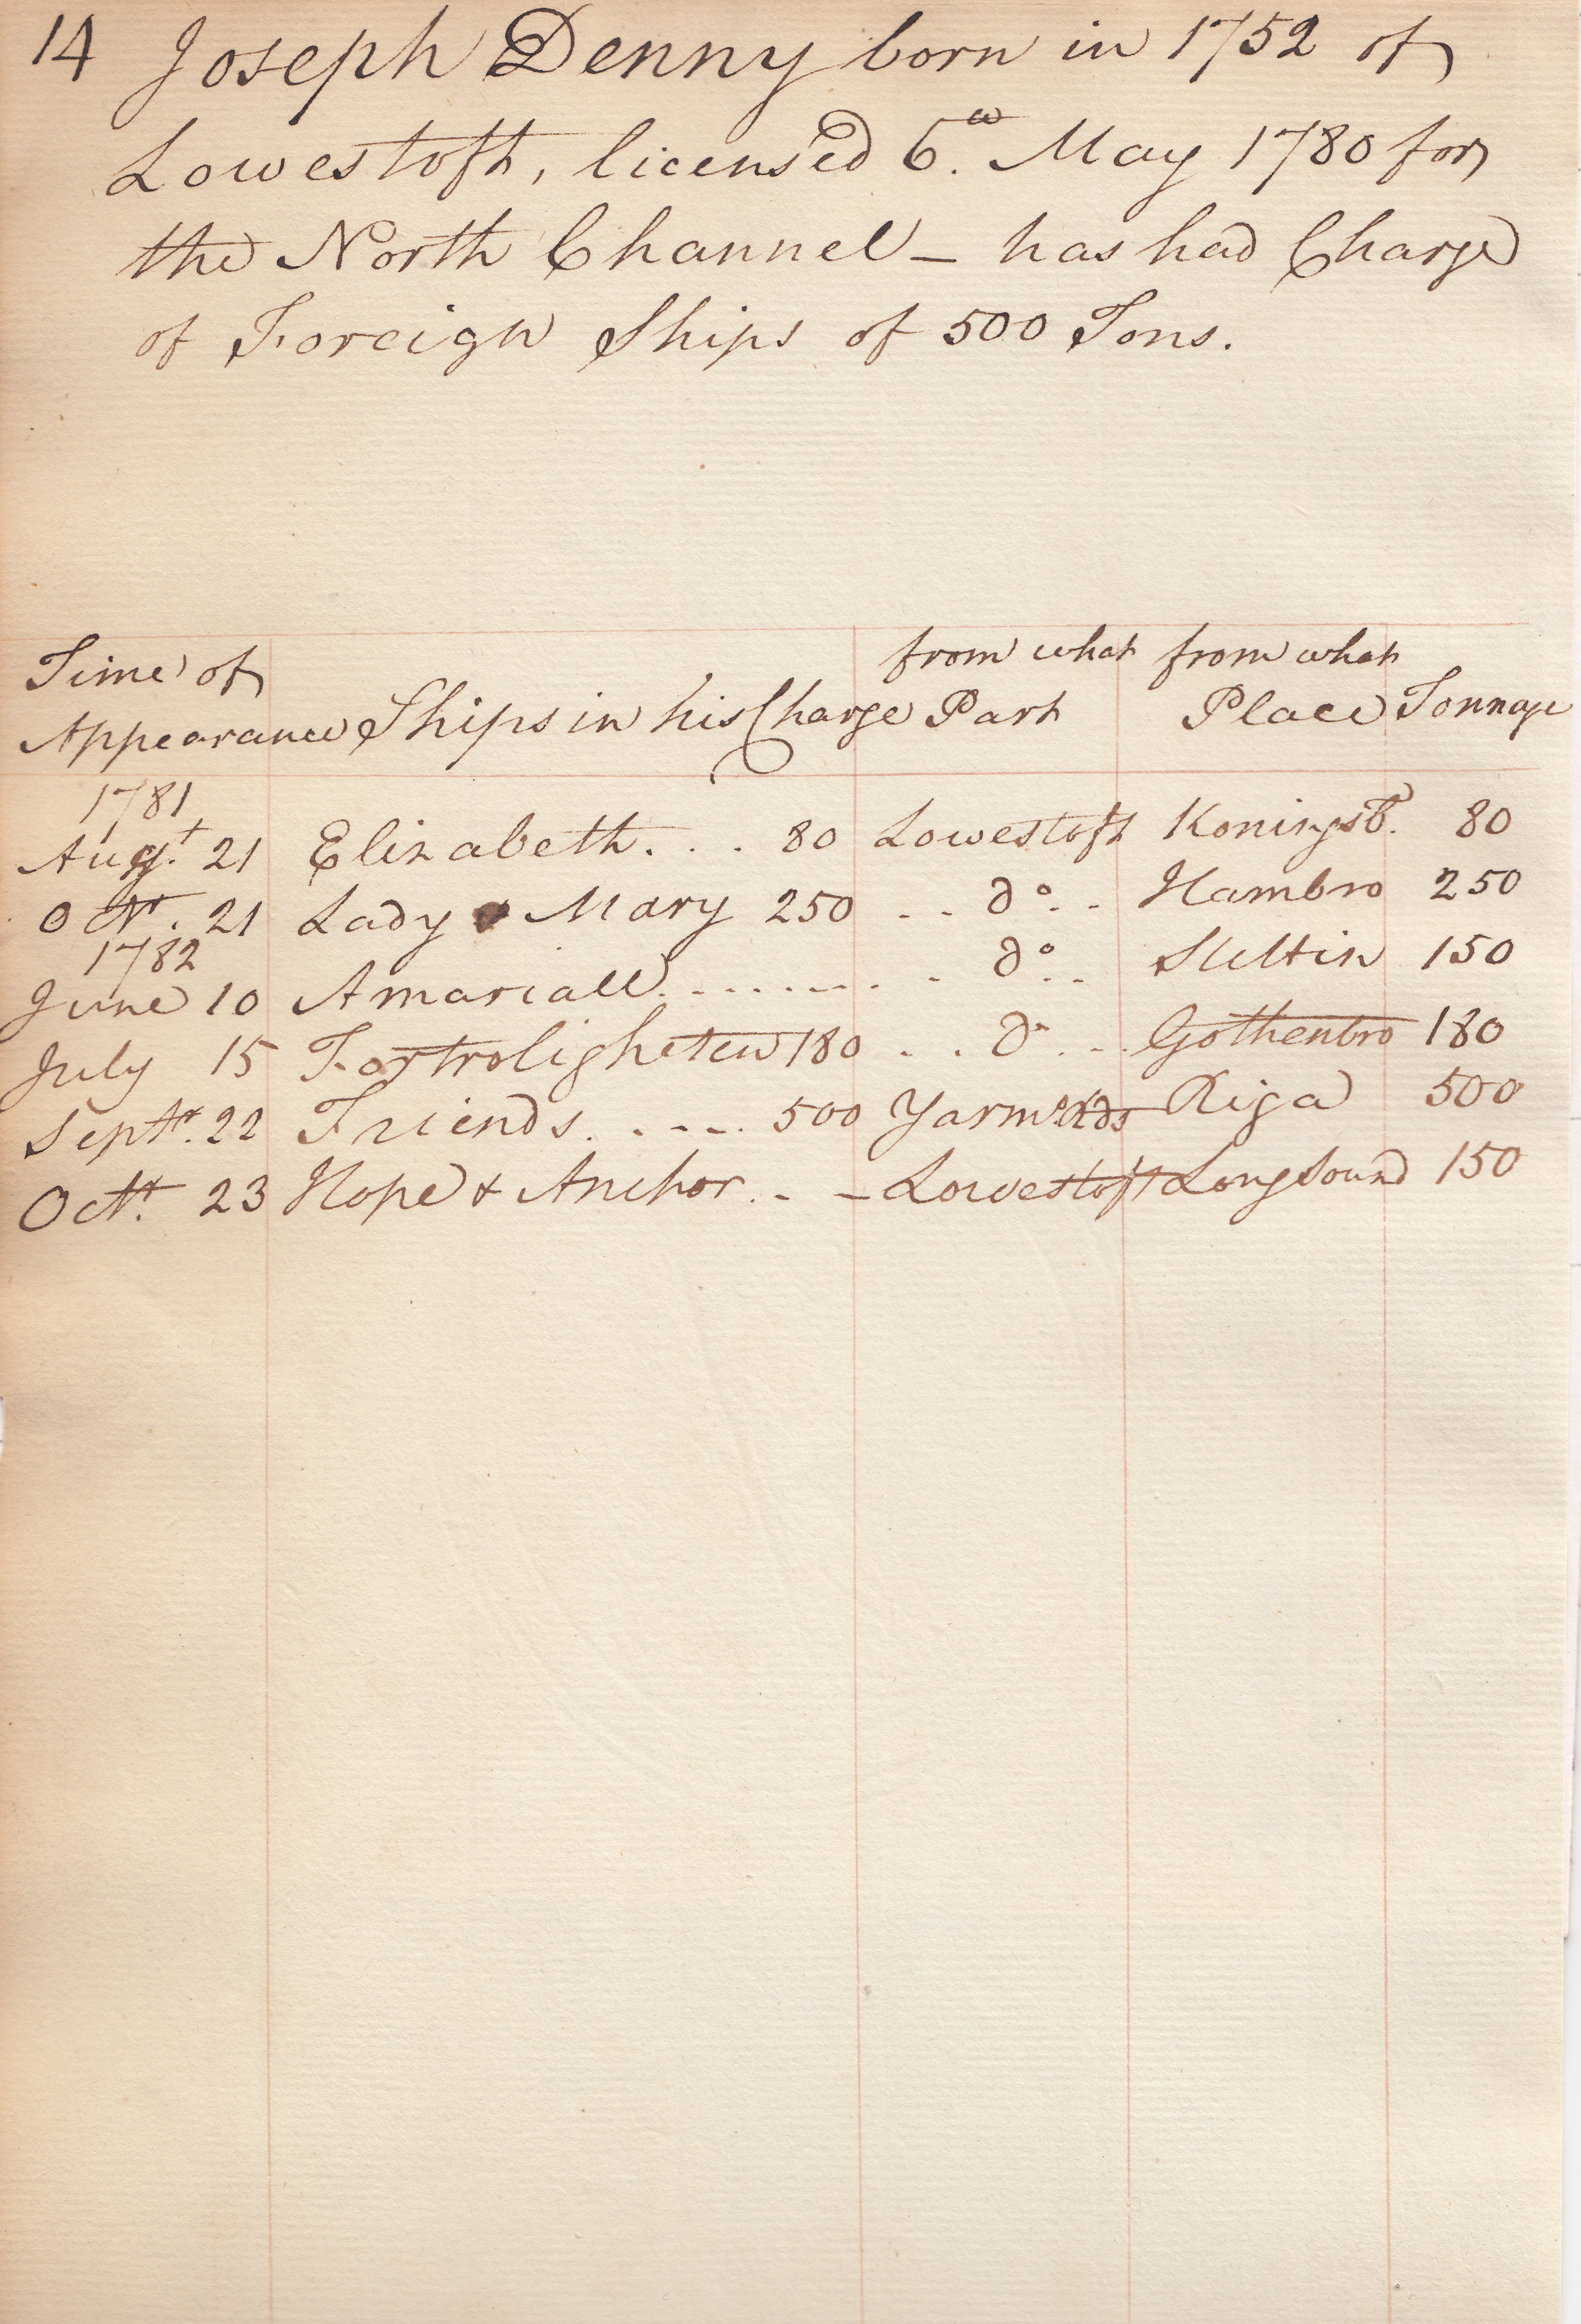 14 Joseph Denny born in 1752 of
Lowestoft, licens'ed 6.th May 1780 for
the North Channel - has had Charge
of Foreign Ships of 500 Tons.
from what from what
Time of
Appearance Ships in his Charge Part Place Tonnage
1781
Augt. 21 Elizabeth. . . 80 Lowestoft Koningsb. 80
Octr. 21 Lady Mary 250 . . do. . Hambro 250
1782
June 10 Amariall . . . . . . . . . do. . Stettin 150
July 15 180 . . do . . Gothenbro 180
Septr. 22 Friends. . . . . 500 Yarmo Rds Riga 500
Octr. 23 Hope & Anchor. - - Lowestoft Longsound 150